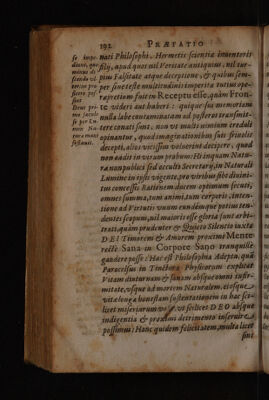 192 PRÆFATIO
se impe-
diant, quo
vitæ
Deus pri-
mo sæculo
se per Lu-
men Na-
turæ mani-
festavit.
nati Philosophi, Hermetis scientiæ inventoris
filij, apud quos nil Veritate antiquius, nil tur-
pius Falsitate atque deceptione, & quibus sem-
per sine teste multitudinis imperita totius ope-
fuit in Receptu esse, quam Fron-
te videri aut haberi: quique suæ memoriam
nulla labe contaminatam ad posteros transmit-
tere conati sunt, non ut multi omnium credulè
opinantur, quod imaginationibus suis frivolis
decepti, alios vicissim voluerint decipere, quod
non cadit in virum probum: Hi inquam Natu-
ra non publici sed occulti Secretarij, in Naturali
Lumine in ipsis vigente, pro viribus sibi divini-
tus concessis Rationem ducem optimum secuti,
omnes summa, tum animi, tum corporis, inten-
tione ad Virtutis unum eundémque potius ten-
dentes scopum, nil maioris esse gloria sunt arbi-
trati, quàm prudenter & Quieto Silentio iuxta
DEI Timorem & Amorem proximi Mente
rectè Sana in Corpore Sano tranquillè
gaudere posse: Hæc est Philosophia Adepta, quam
Paracelsus in Tinctura Physicorum explicat
Vitam diuturnam & sanam absque omni infir-
mitate, usque ad mortem Naturalem, eiusque
vitæ longæ honestam sustentationem in hac sci-
licet miseriarum valle, ut scilicet DEO absque
indigentia & proximi detrimento inservire
possimus: Hanc quidem felicitatem, multa licet
sint